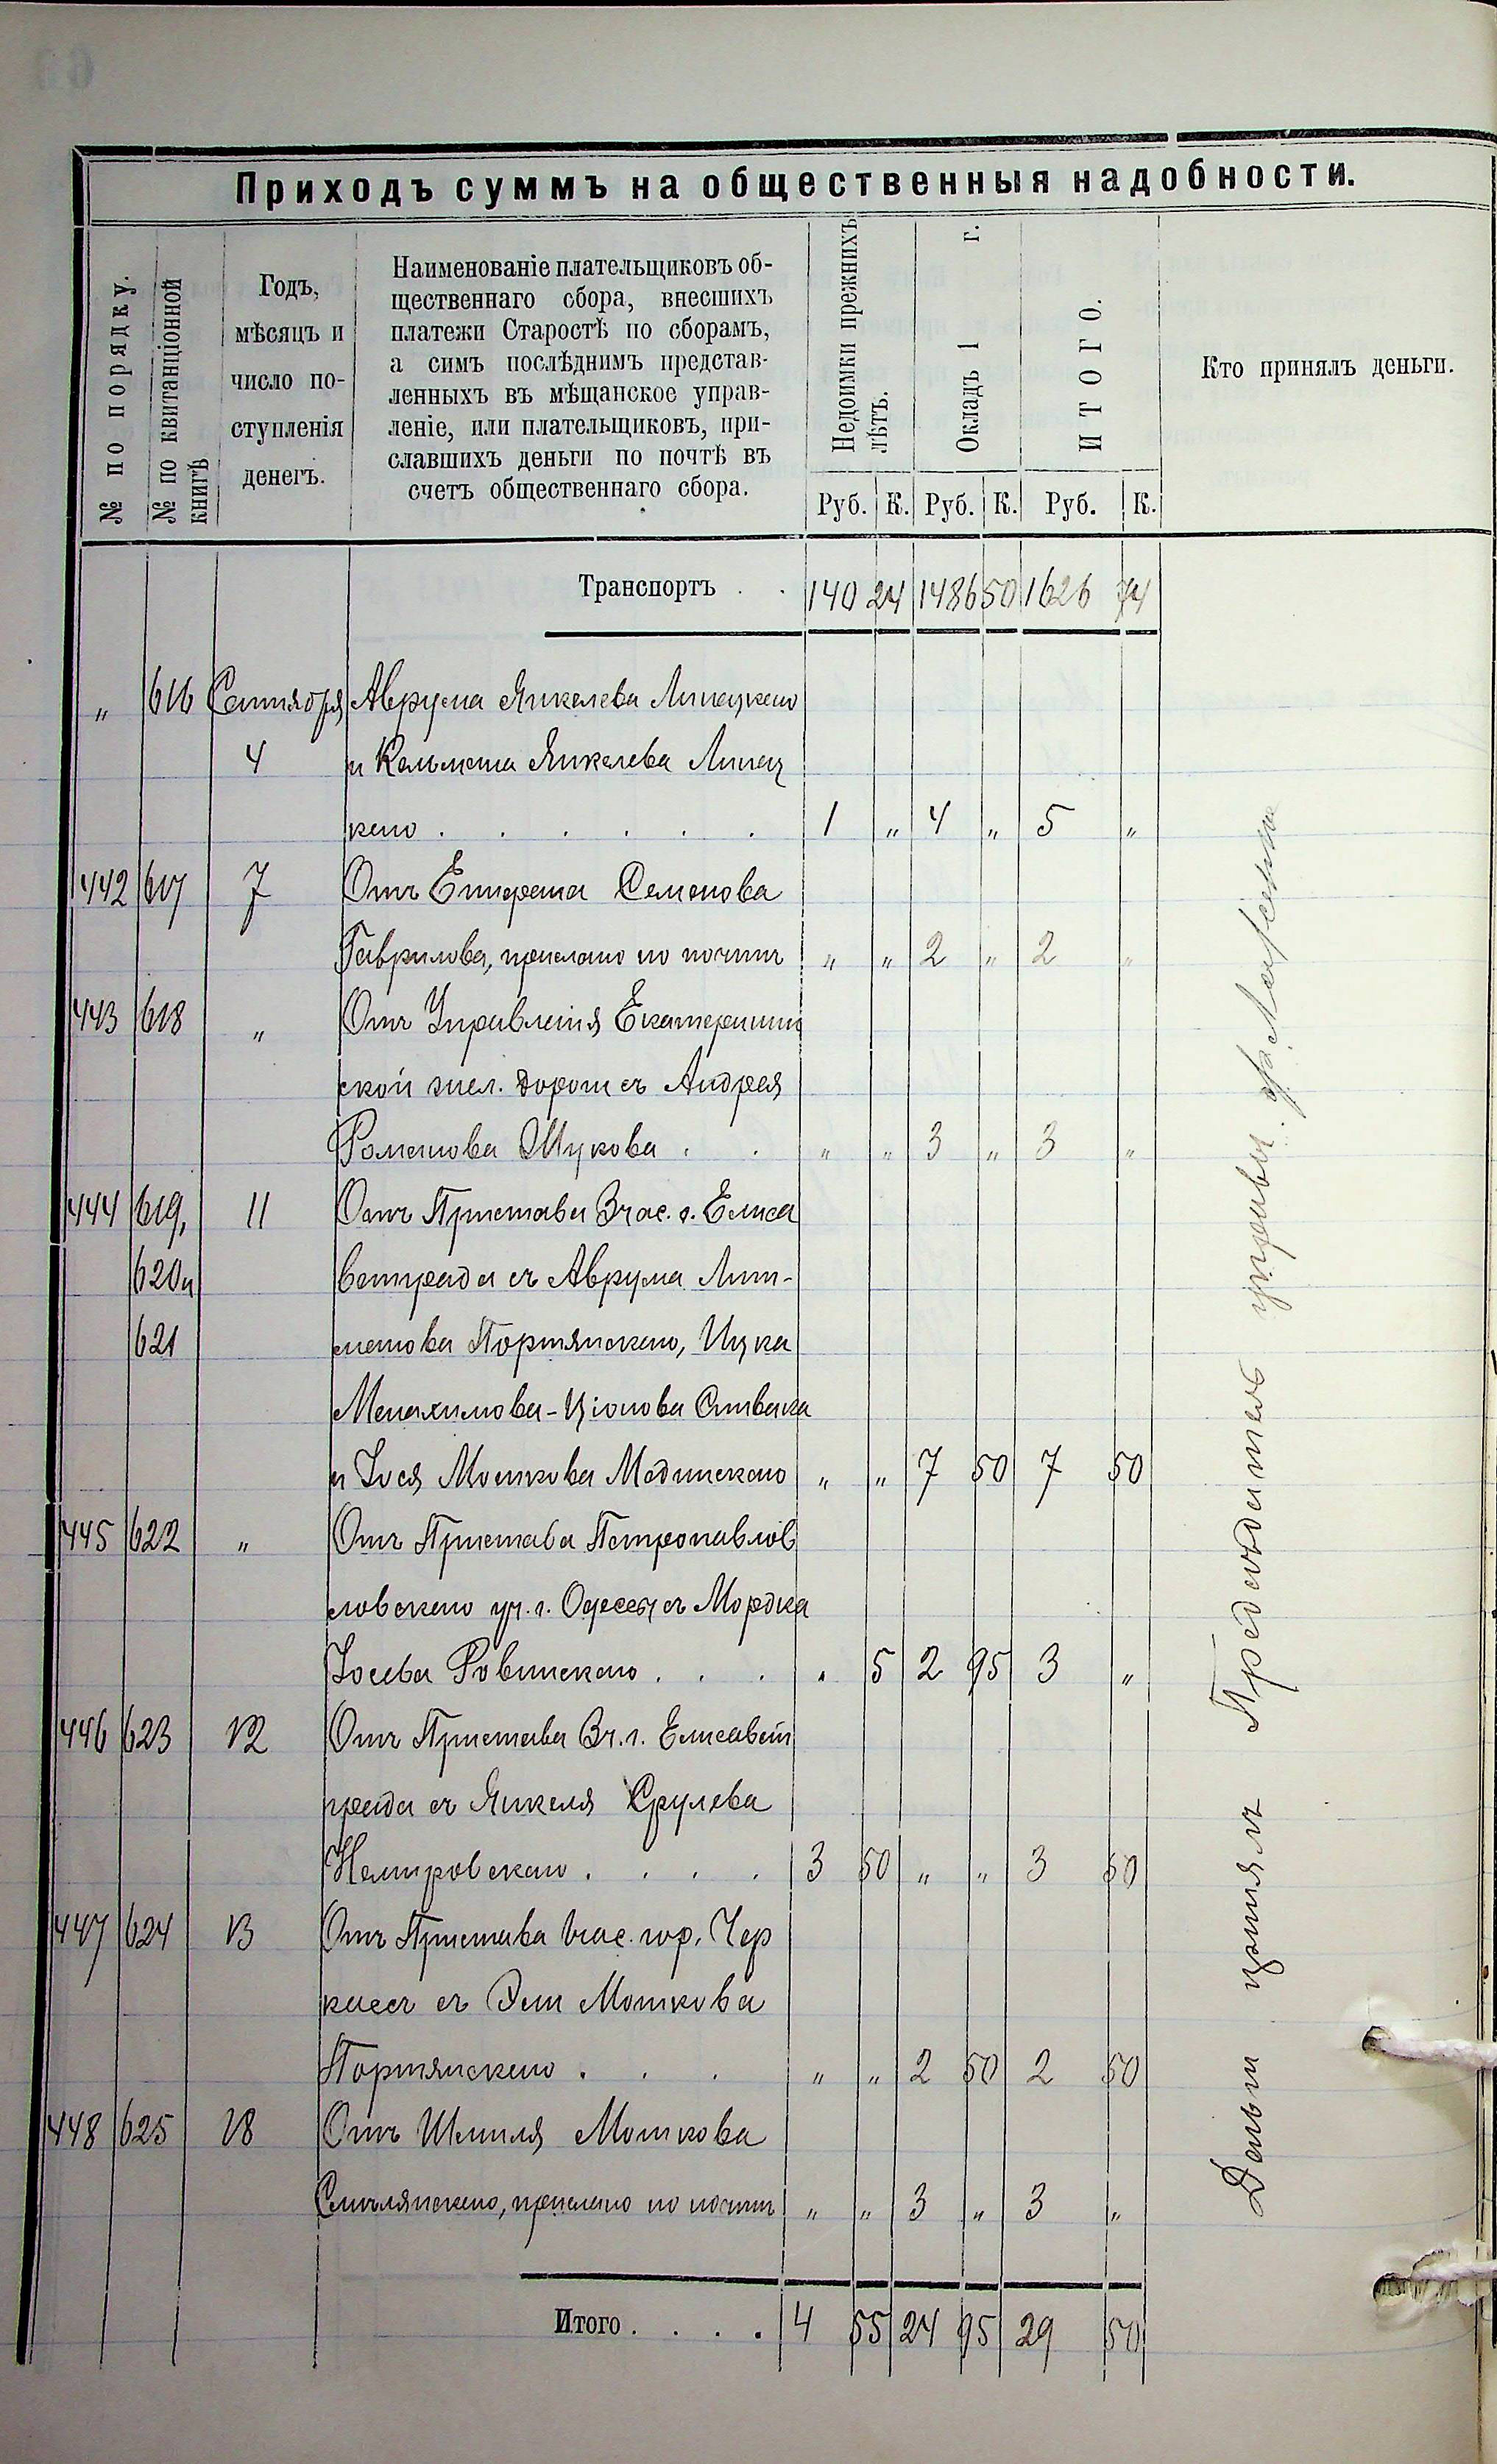 Приходъ суммъ на общественныя надобности.
№ по порядку.
№ по квитанціонной книгѣ
Годъ, мѣсяцъ и число поступленія денегъ.
Наименованіе плательщиковъ об-
щественнаго сбора, внесшихъ
платежи Старостѣ по сборамъ,
а симъ послѣднимъ представ-
ленныхъ въ мѣщанское управ-
леніе, или плательщиковъ, при-
славшихъ деньги по почтѣ въ
счетъ общественнаго сбора.
Недоимки прежнихъ лѣтъ.
Окладъ 1 г.
ИТОГО.
Кто принялъ деньги.
Руб. К. Руб. К. Руб. К.
Транспортъ . . 140 24 1486 50 1626 74
„ 616 Сентября Аврума Янкелева Липецкаго
4 и Кельмана Янкелева Липец
каго . . . . . . 1 „ 4 „ 5 „
442 617 7 Отъ Епифана Семенова
Гаврилова, прислано по почтѣ „ „ 2 „ 2 „
443 618 „ Отъ Управленія Екатеринин
ской жел. дороги съ Андрея
Романова Шукова . . „ „ 3 „ 3 „
444 619, 11 Отъ Пристава 3 час. г. Елиса
620 и ветграда съ Аврума Лит-
621 манова Портянскаго, Ицка
Менахимова-Ціонова Спивака
и Іося Мошкова Мединскаго „ „ 7 50 7 50
445 622 „ Отъ Пристава Петропавлов
ловскаго уч. г. Одессы съ Мордка
Іосева Ровинскаго . . . „ 5 2 95 3 „
446 623 12 Отъ Пристава 3 ч. г. Елисавет
града съ Янкеля Срулева
Немировскаго . . . . 3 50 „ „ 3 50
447 624 13 Отъ Пристава 1 час. гор. Чер
кассъ съ Эли Мошкова
Портянскаго . . . „ „ 2 50 2 50
448 625 18 Отъ Шмиля Мошкова
Смилянскаго, прислано по почтѣ „ „ 3 „ 3 „
Итого . . . . 4 55 24 95 29 50
Деньги принялъ Предсѣдатель управы